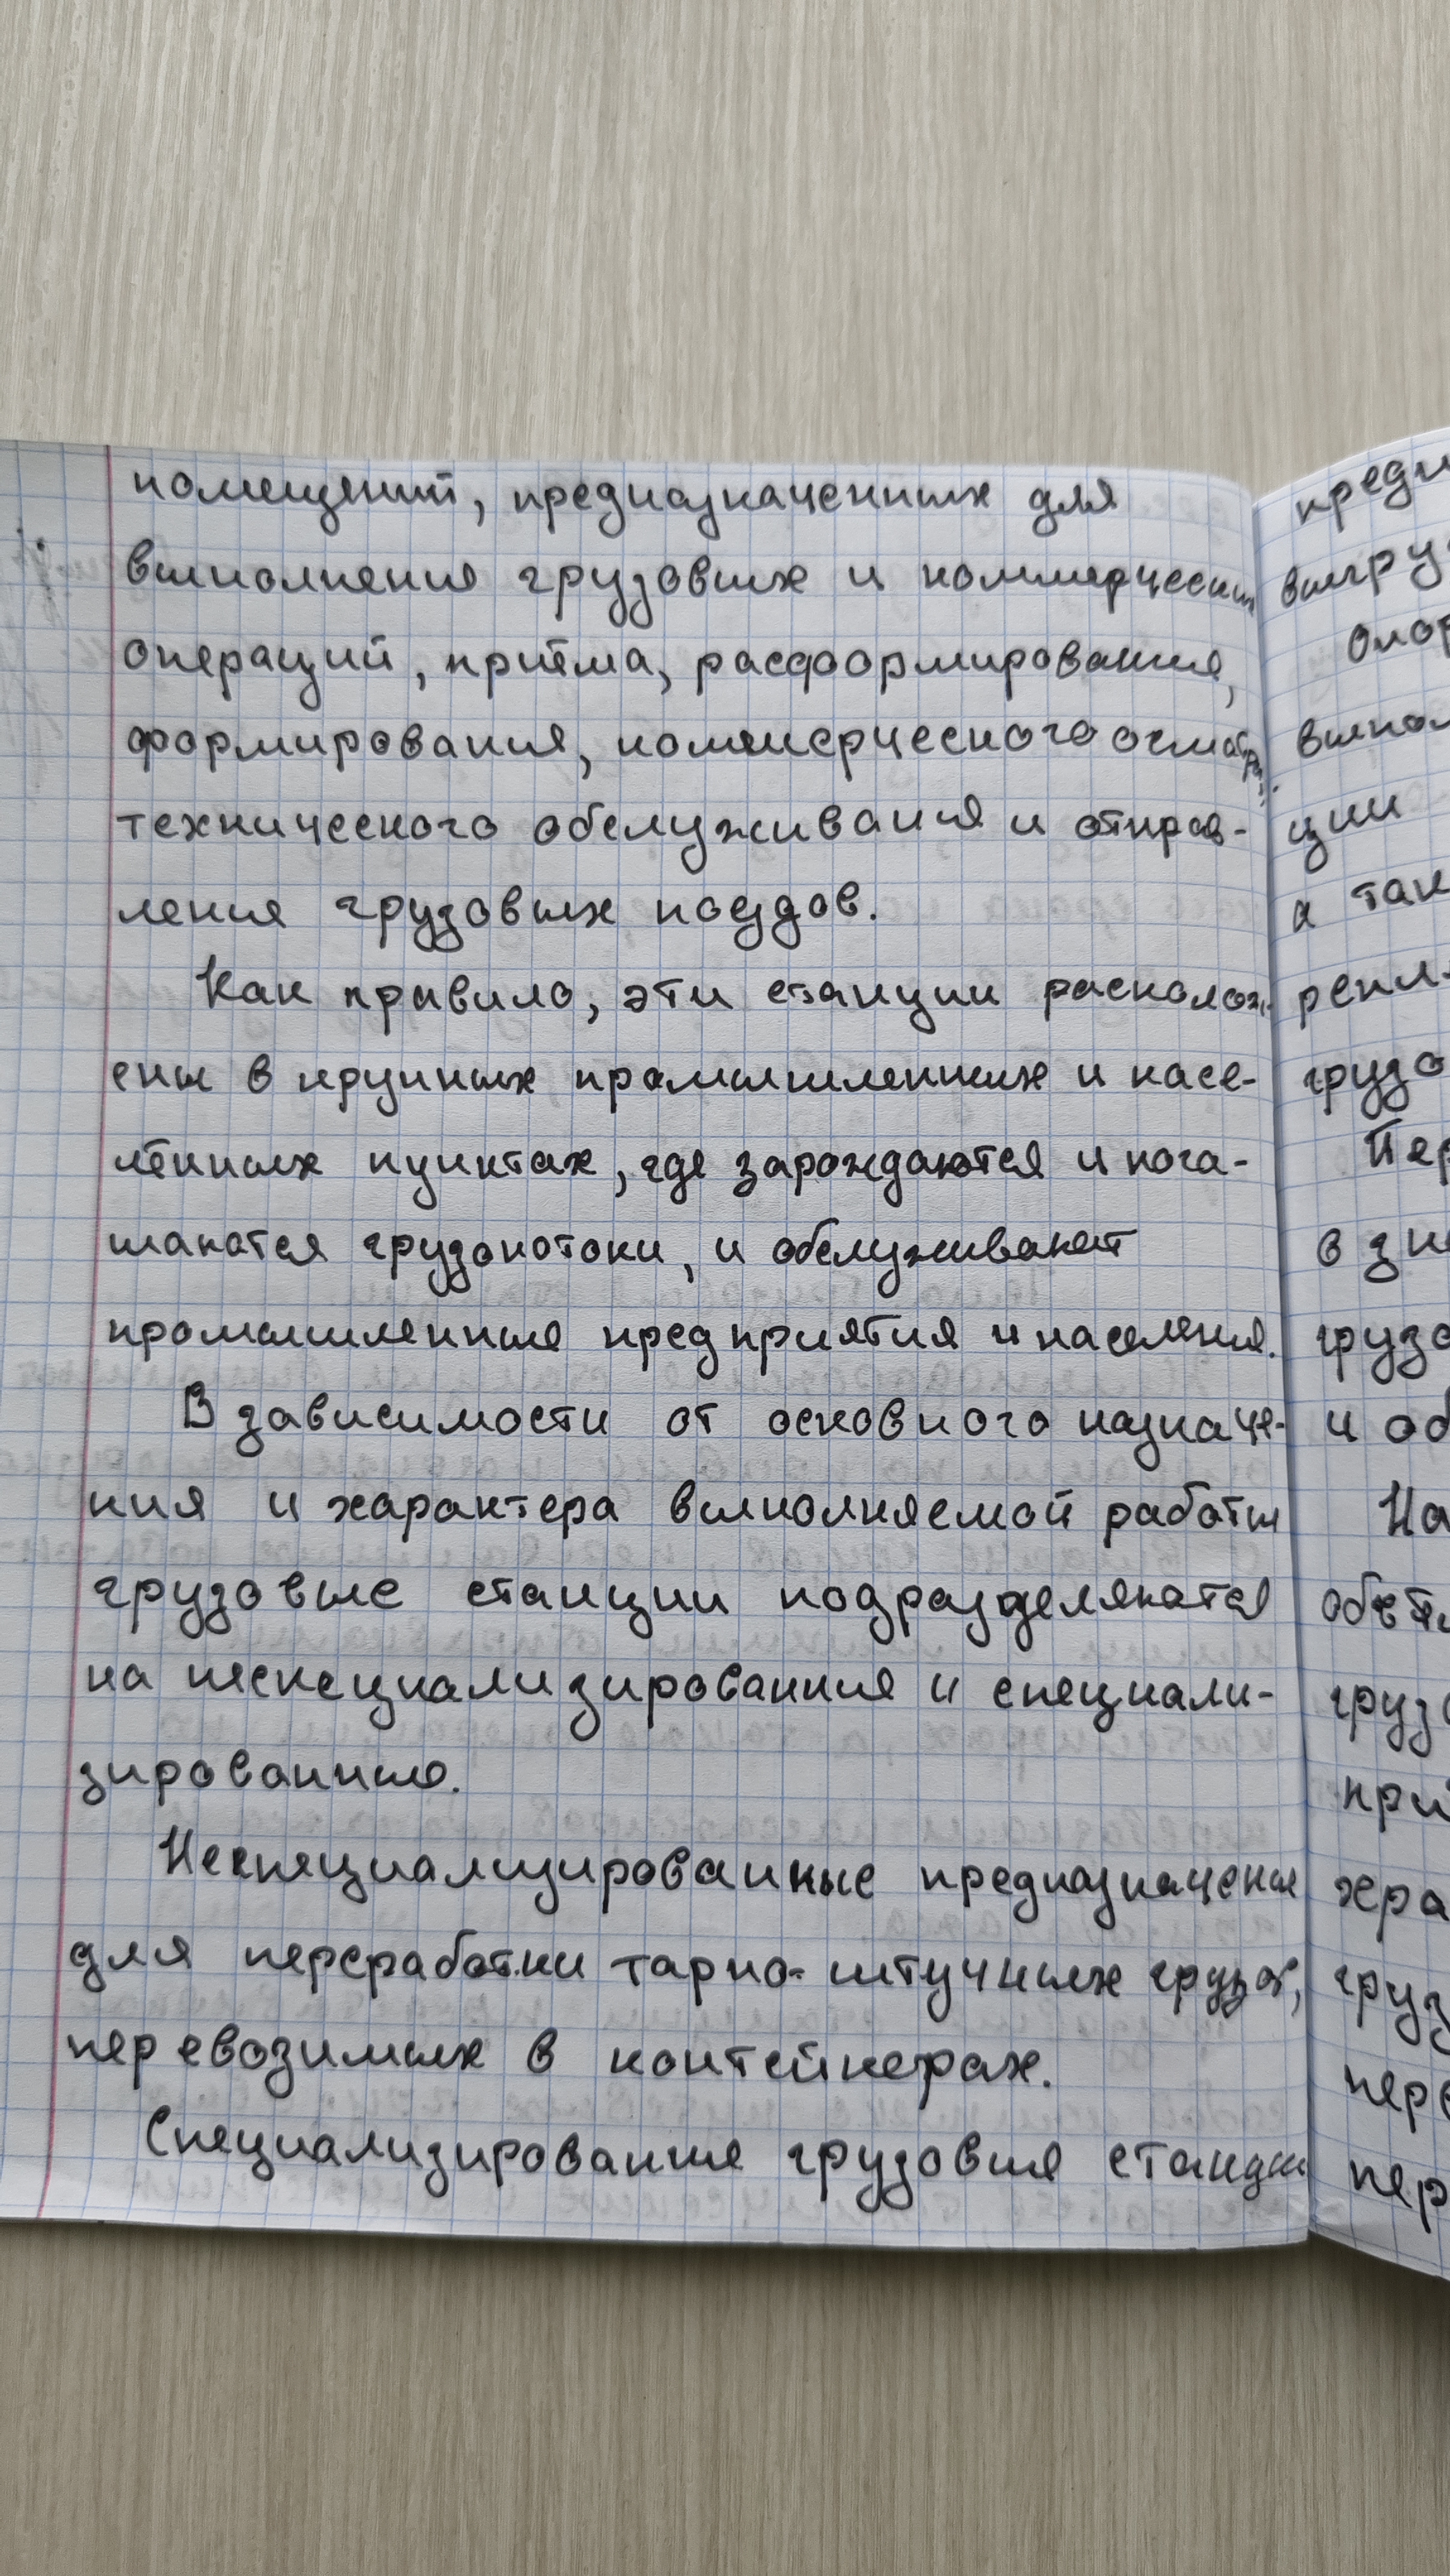 помещений, предназначенных для
выполнение грузовых и коммерческих
операций, приёма, расформирования,
формирования, коммерческого осмотра,
технического обслуживания и отправ-
ления грузовых поездов.
Как правило, эти станции располож-
ены в крупных промышленных и насе-
лённых пунктах, где зарождаются и пога-
шаются грузопотоки, и обслуживают
промышленные предприятия и население.
В зависимости от основного назначе-
ния и характера выполняемой работы
грузовые станции подразделяются
на неспециализированные и специали-
зированные.
Неспециализированные предназначены
для переработки тарно-штучных грузов,
перевозимых в контейнерах.
Специализированные грузовые станции
предн
выгру
выпол
ции
а так
грузо
Пер
в зн
грузо
и об
На
груз
при
хра
груз
пере
пер